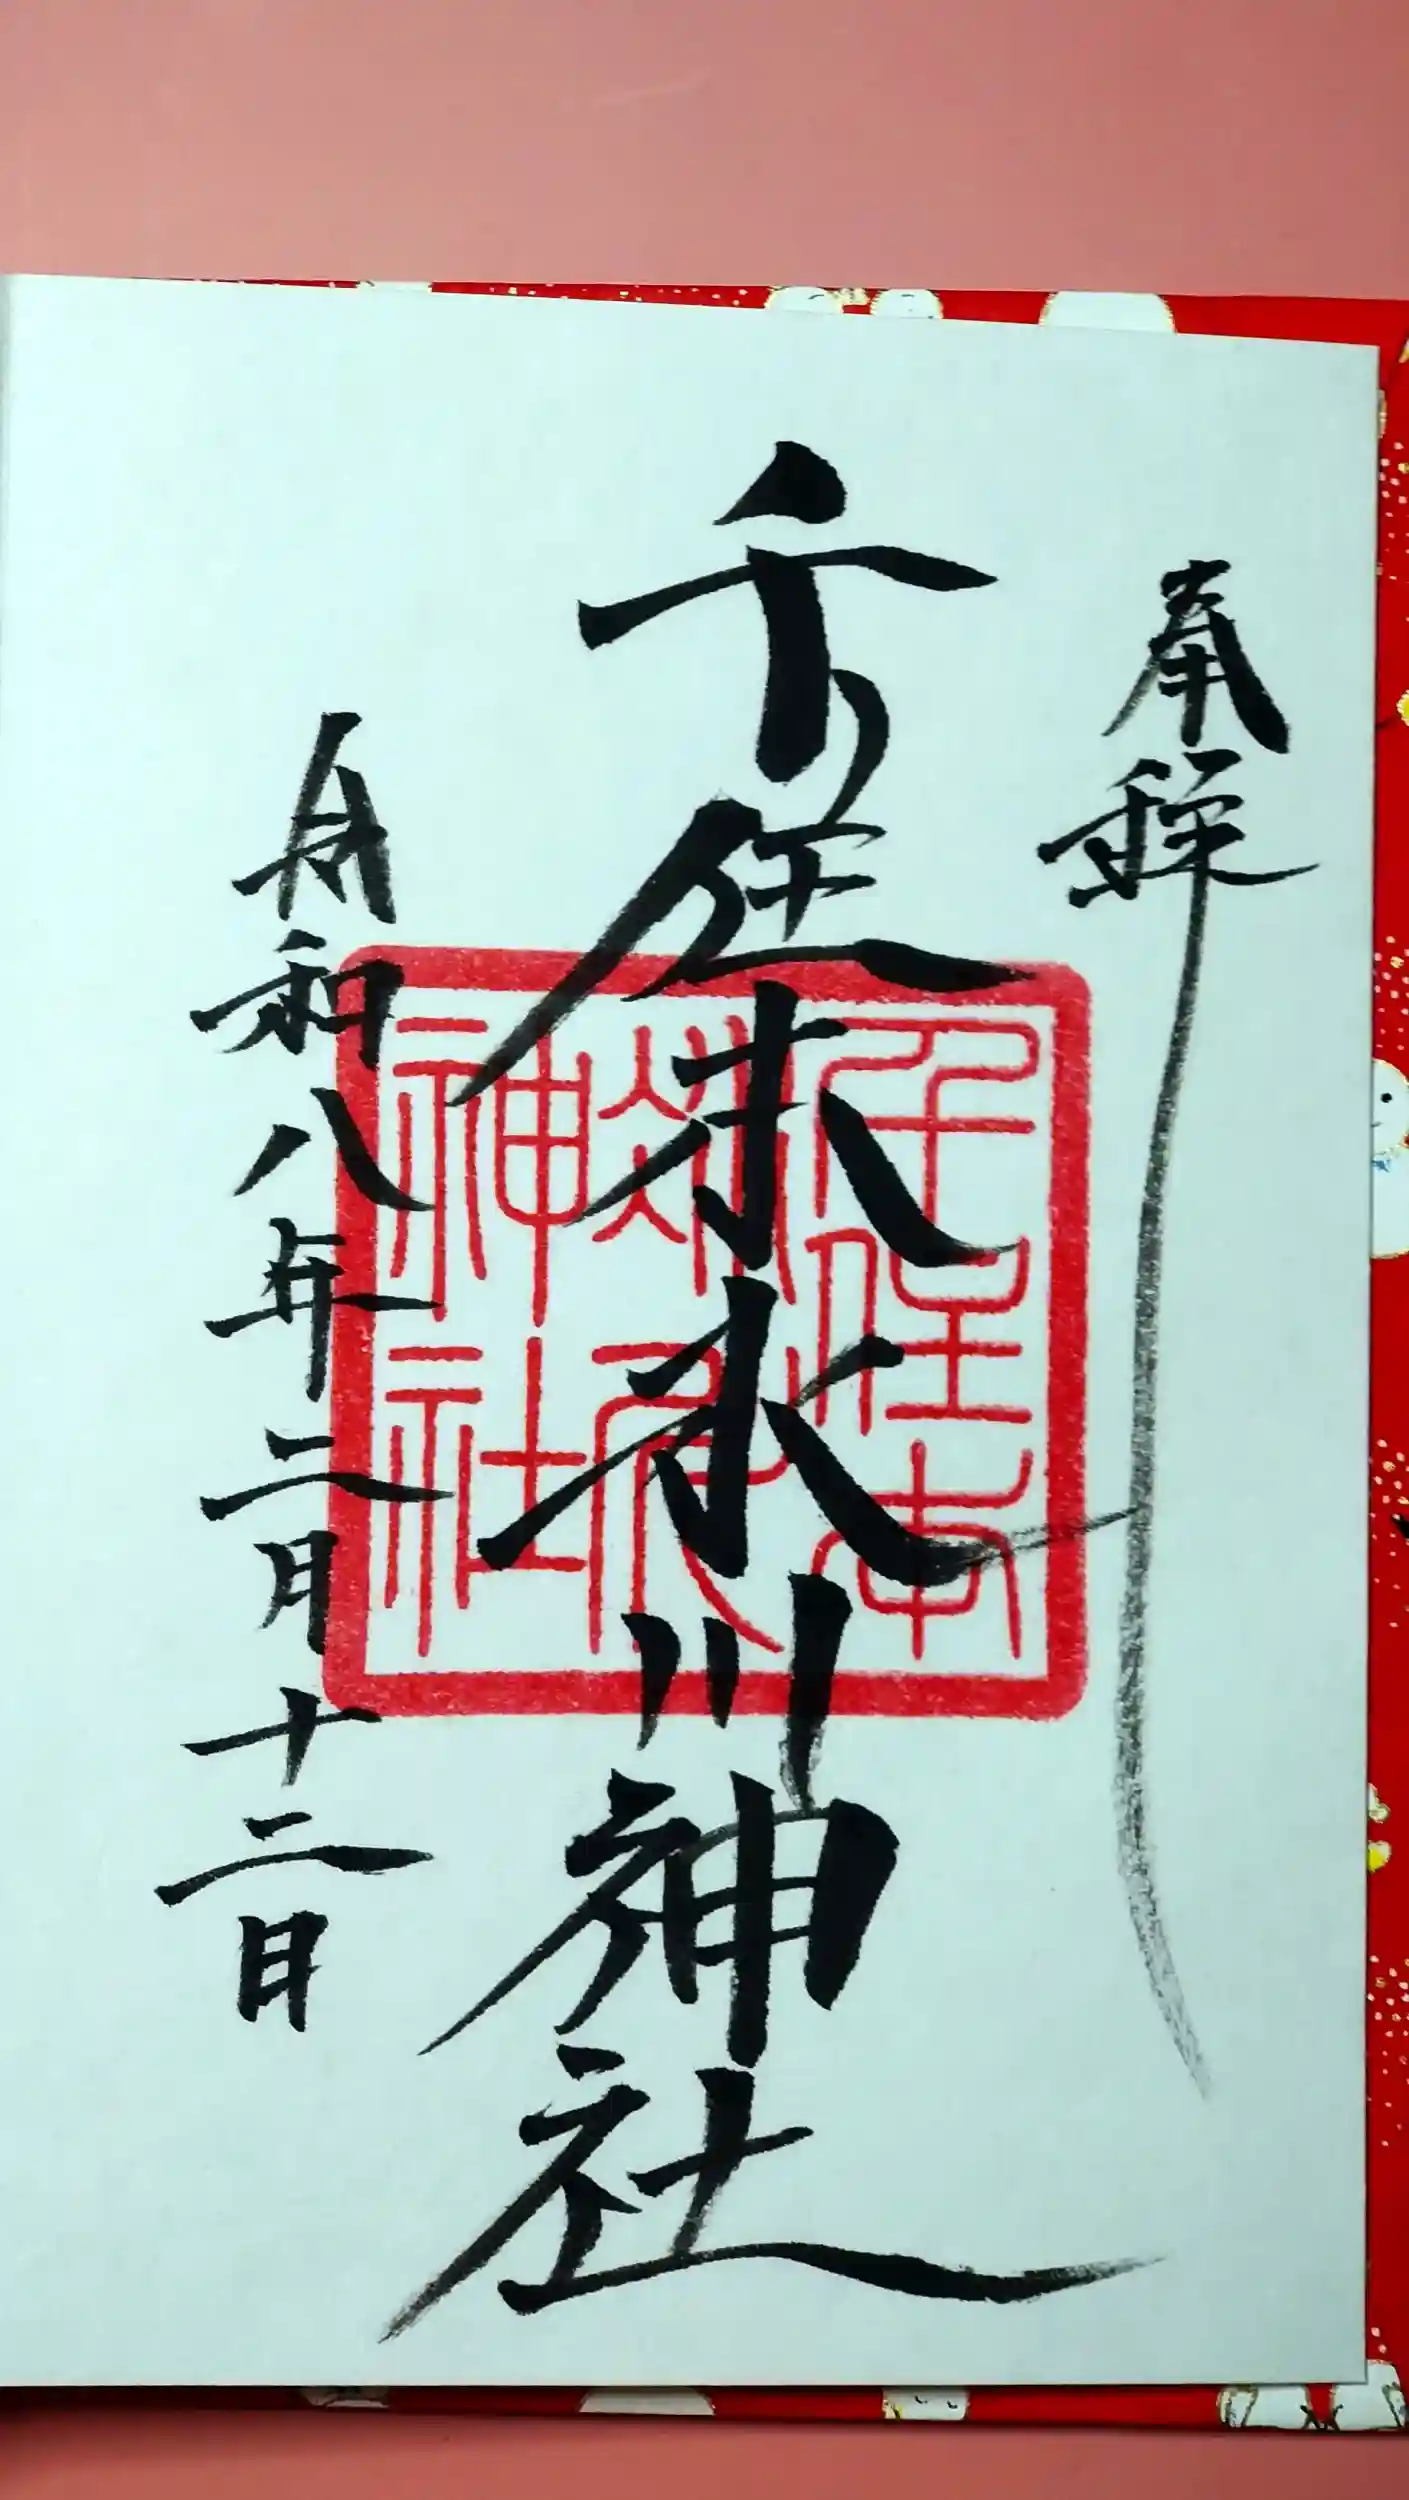 奉拝
千住本氷川神社
令和八年二月十二日
千住本
神社